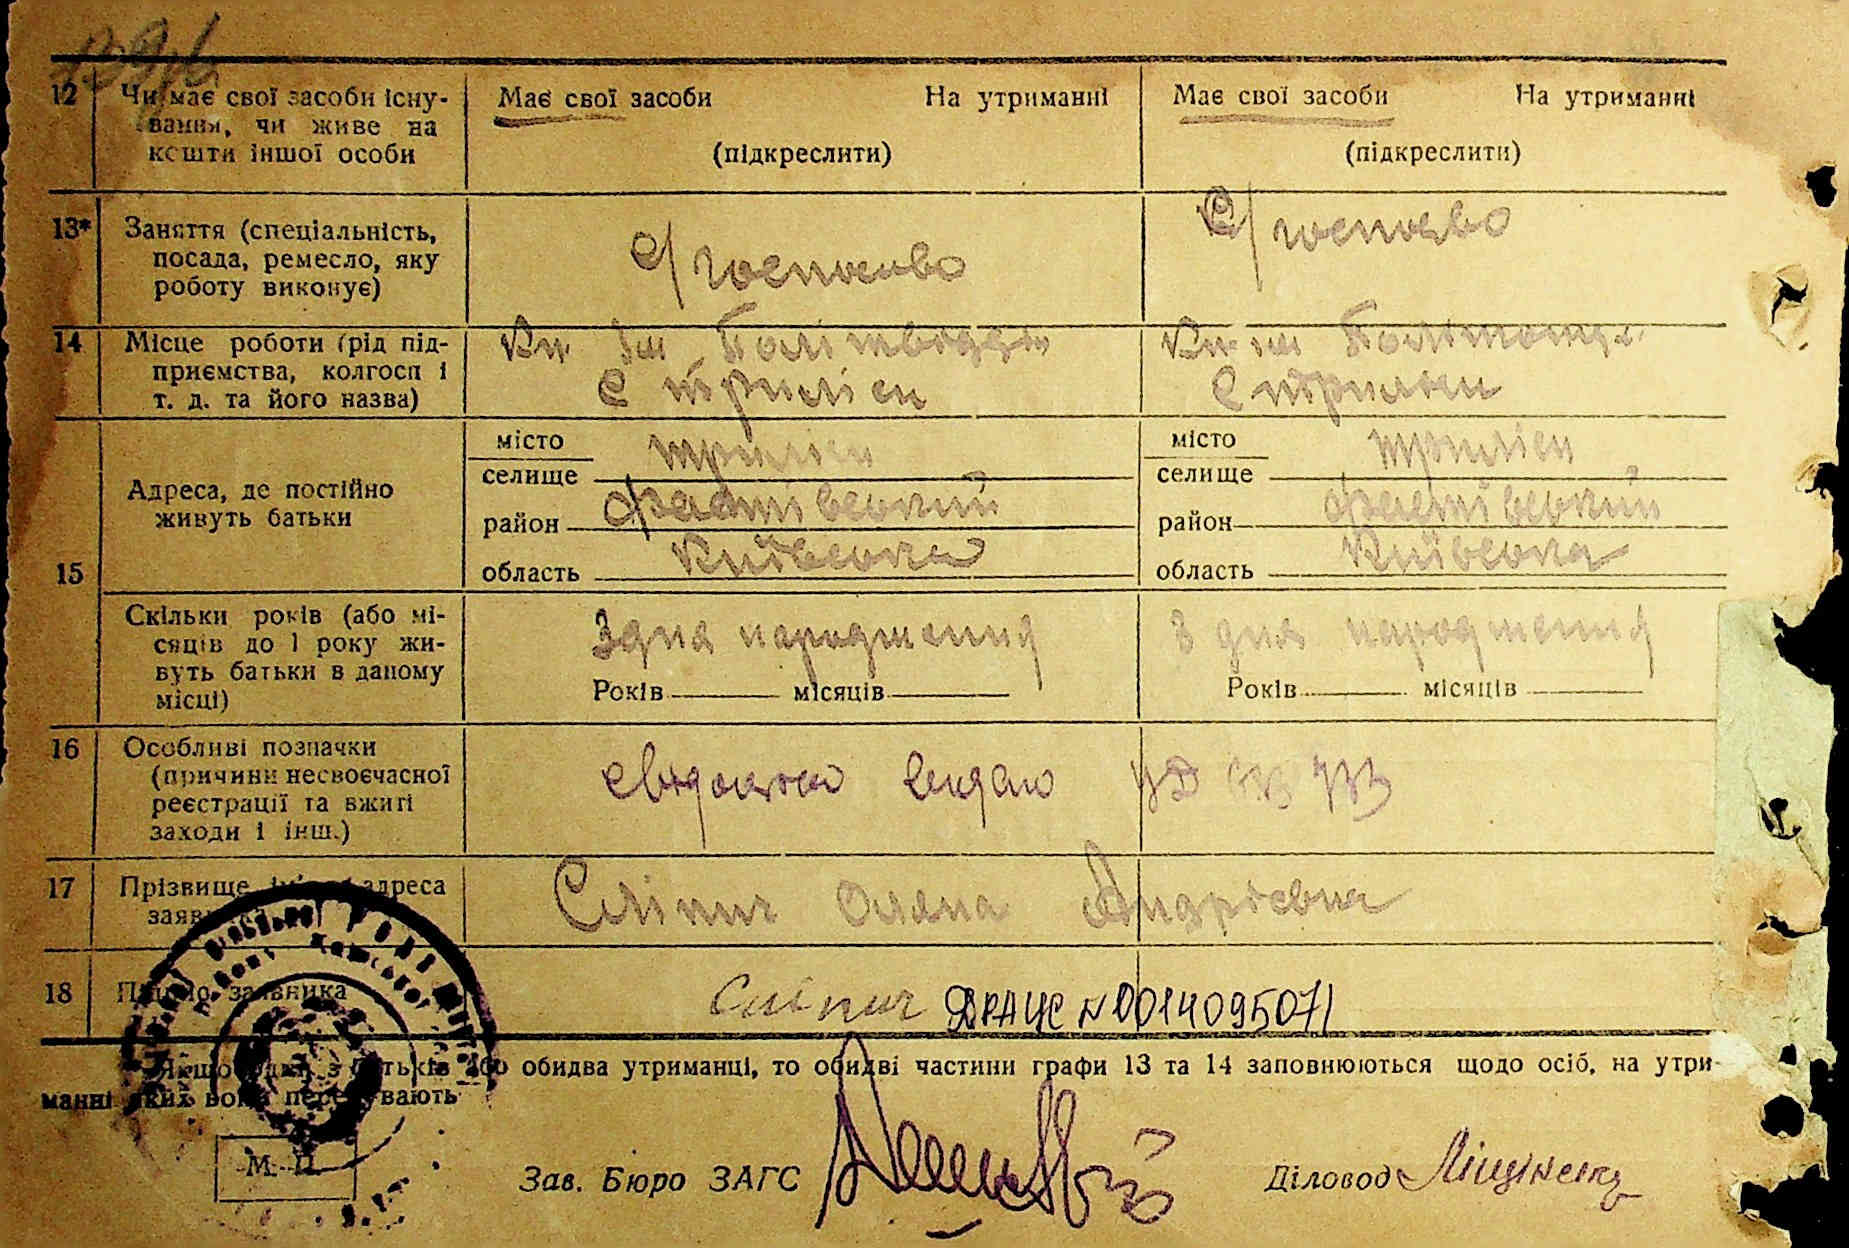 12 Чи має свої засоби існу- Має свої засоби На утриманні Має свої засоби На утриманні
вання, чи живе на
кошти іншої особи (підкреслити) (підкреслити)
13* Заняття (спеціальність,
посада, ремесло, яку
роботу виконує)
С/господво С/господво
14 Місце роботи (рід під-
приємства, колгосп і
т. д. та його назва)
ім Політвідділу ім
С Триліси С Триліси
15 Адреса, де постійно
живуть батьки
місто Триліси місто Триліси
селище селище
район Фастівський район Фастівський
область Київська область Київська
Скільки років (або мі-
сяців до 1 року жи-
вуть батьки в даному
місці)
З дня народження З дня народження
Років місяців Років місяців
16 Особливі позначки
(причини несвоєчасної
реєстрації та вжиті
заходи і інш.)
УД
17 Прізвище, ім'я адреса
заявника
Сліпич Оляна Андріевна
18 Підпис заявника
Сліпич ДРАЦС N 0014095071
Якщо один з батьків або обидва утриманці, то обидві частини графи 13 та 14 заповнюються щодо осіб, на утри-
манні яких вони перебувають
М. П.
Зав. Бюро ЗАГС Діловод